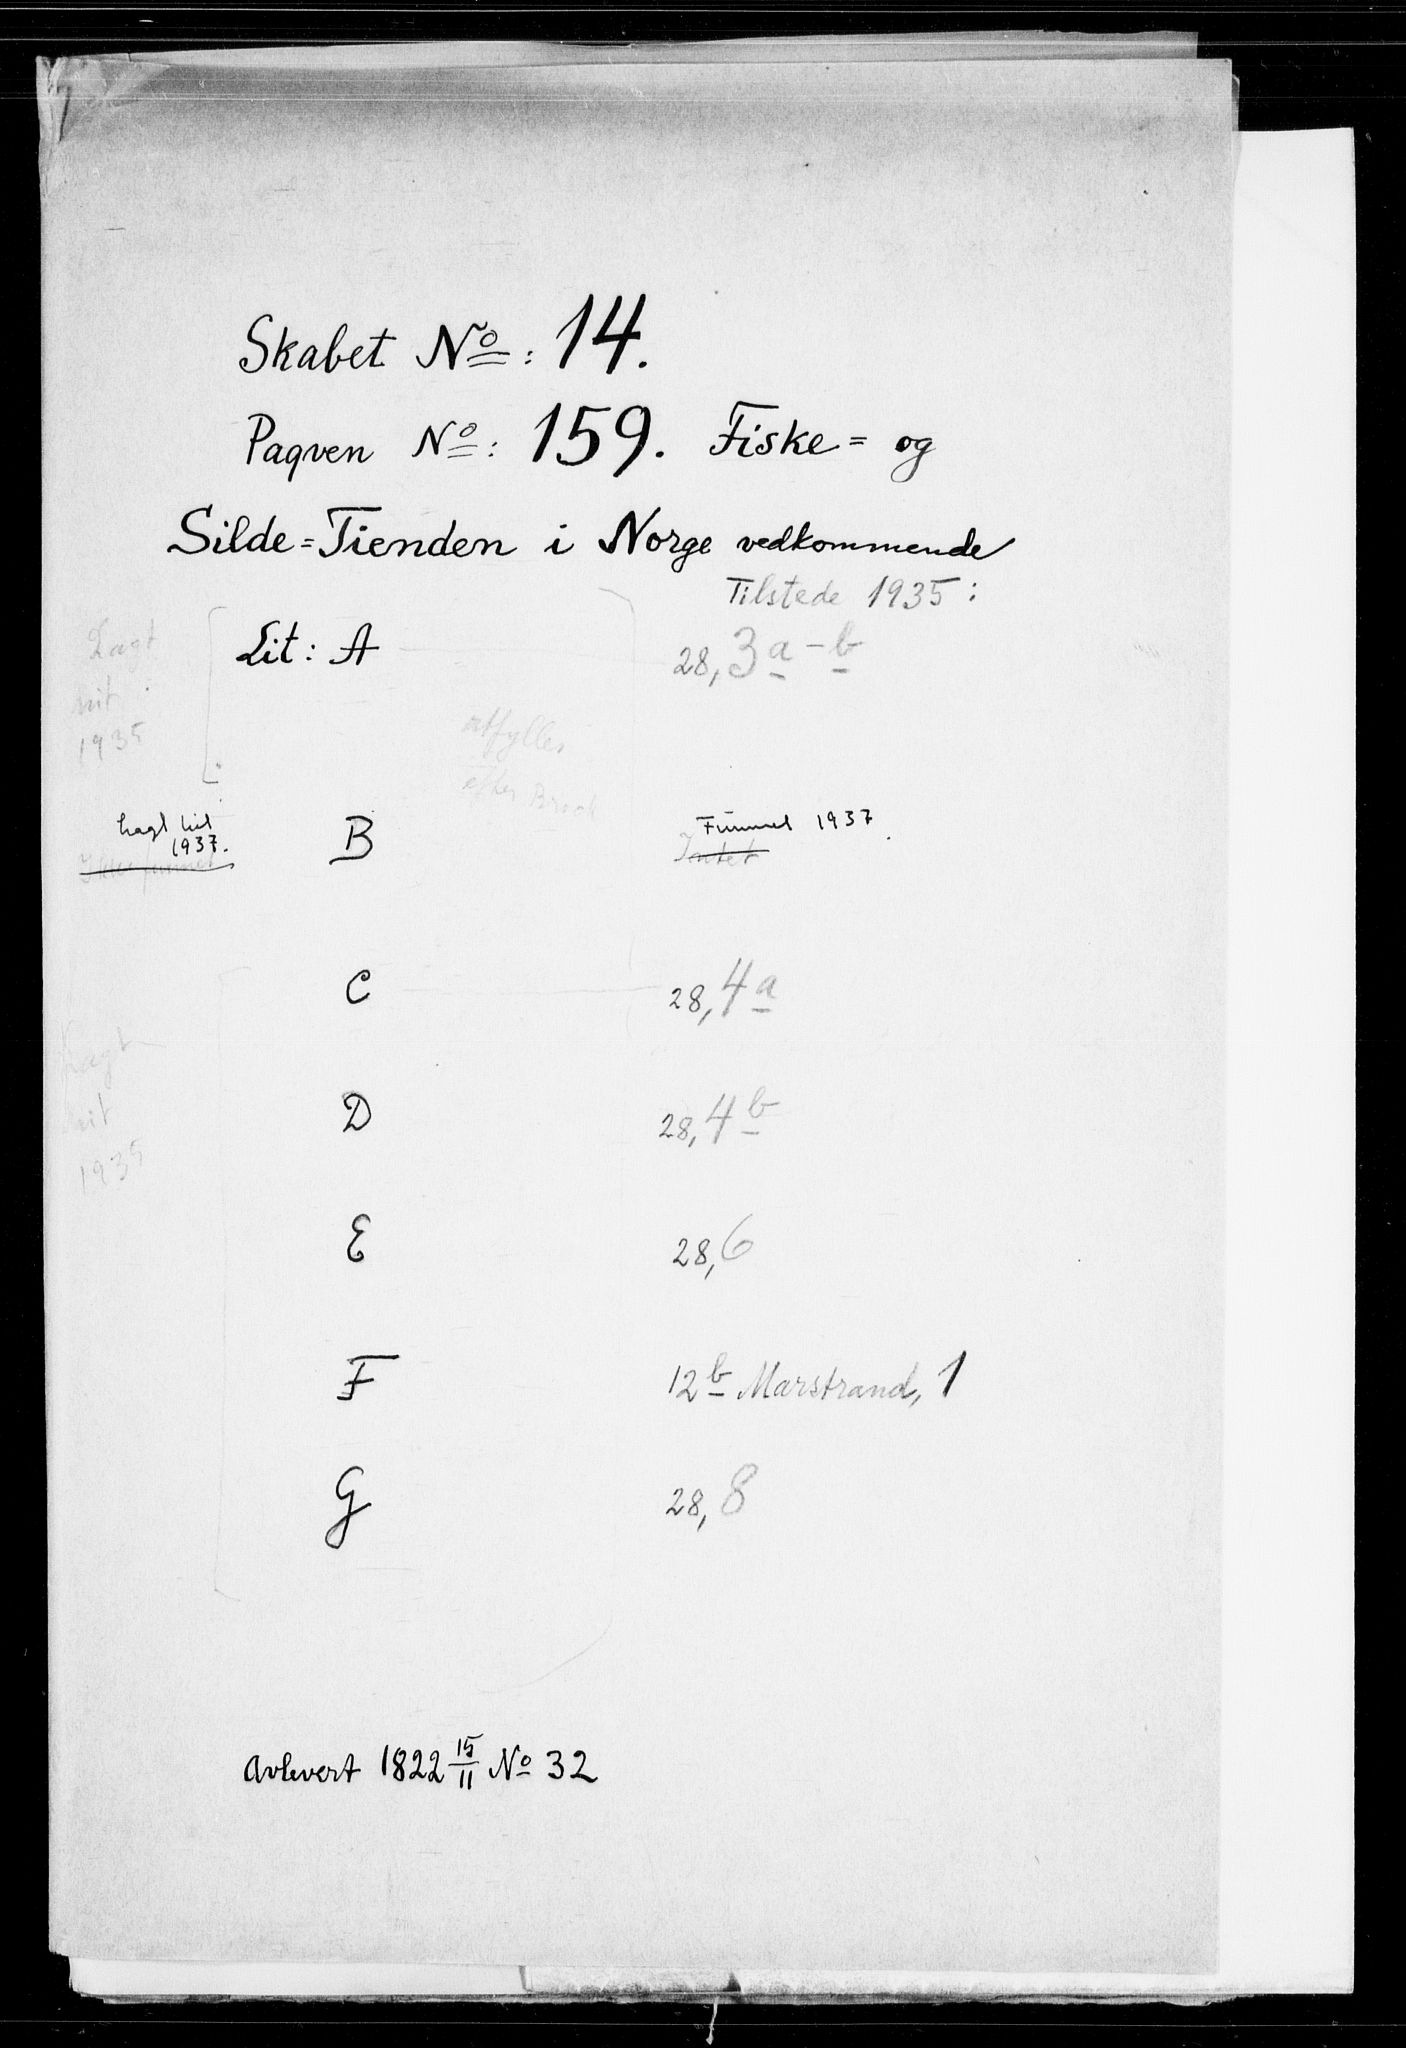 Skabet No: 14.
Paqven No: 159. Fiske= og
Silde=Tienden i Norge vedkommende
Tilstede 1935:
Lagt
hit
1935
Lit: A
28,3a-b
utfylles
efter
Lagt hit
1937.
Ikke funnet
B
Funnet 1937
Intet
C
28,4a
Lagt
hit
1935
D
28,4b
E
28,6
F
12b Marstrand, 1
G
28,8
Avlevert 1822 15/11 No 32